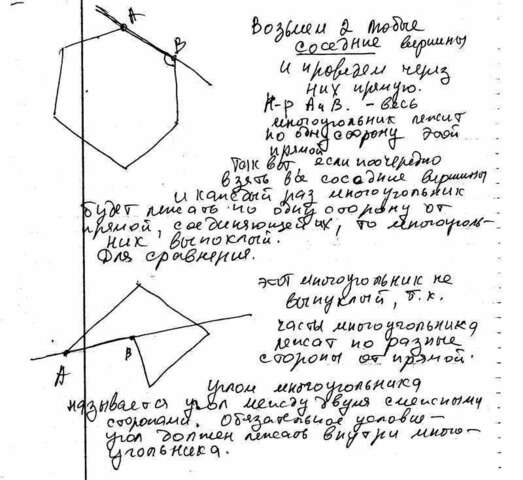 A
B
Возьмем 2 любые
соседние вершины
и проведем через
них прямую.
Н-р А и В. - весь
многоугольник лежит
по одну сторону этой
прямой
Так вот, если поочередно
взять все соседние вершины
и каждый раз многоугольник
будет лежать по одну сторону от
прямой, соединяющей их, то многоуголь-
ник выпуклый.
Для сравнения.
этот многоугольник не
выпуклый, т.к.
части многоугольника
лежат по разные
стороны от прямой.
A
B
Углом многоугольника
называется угол между двумя смежными
сторонами. Обязательное условие -
угол должен лежать внутри много-
угольника.